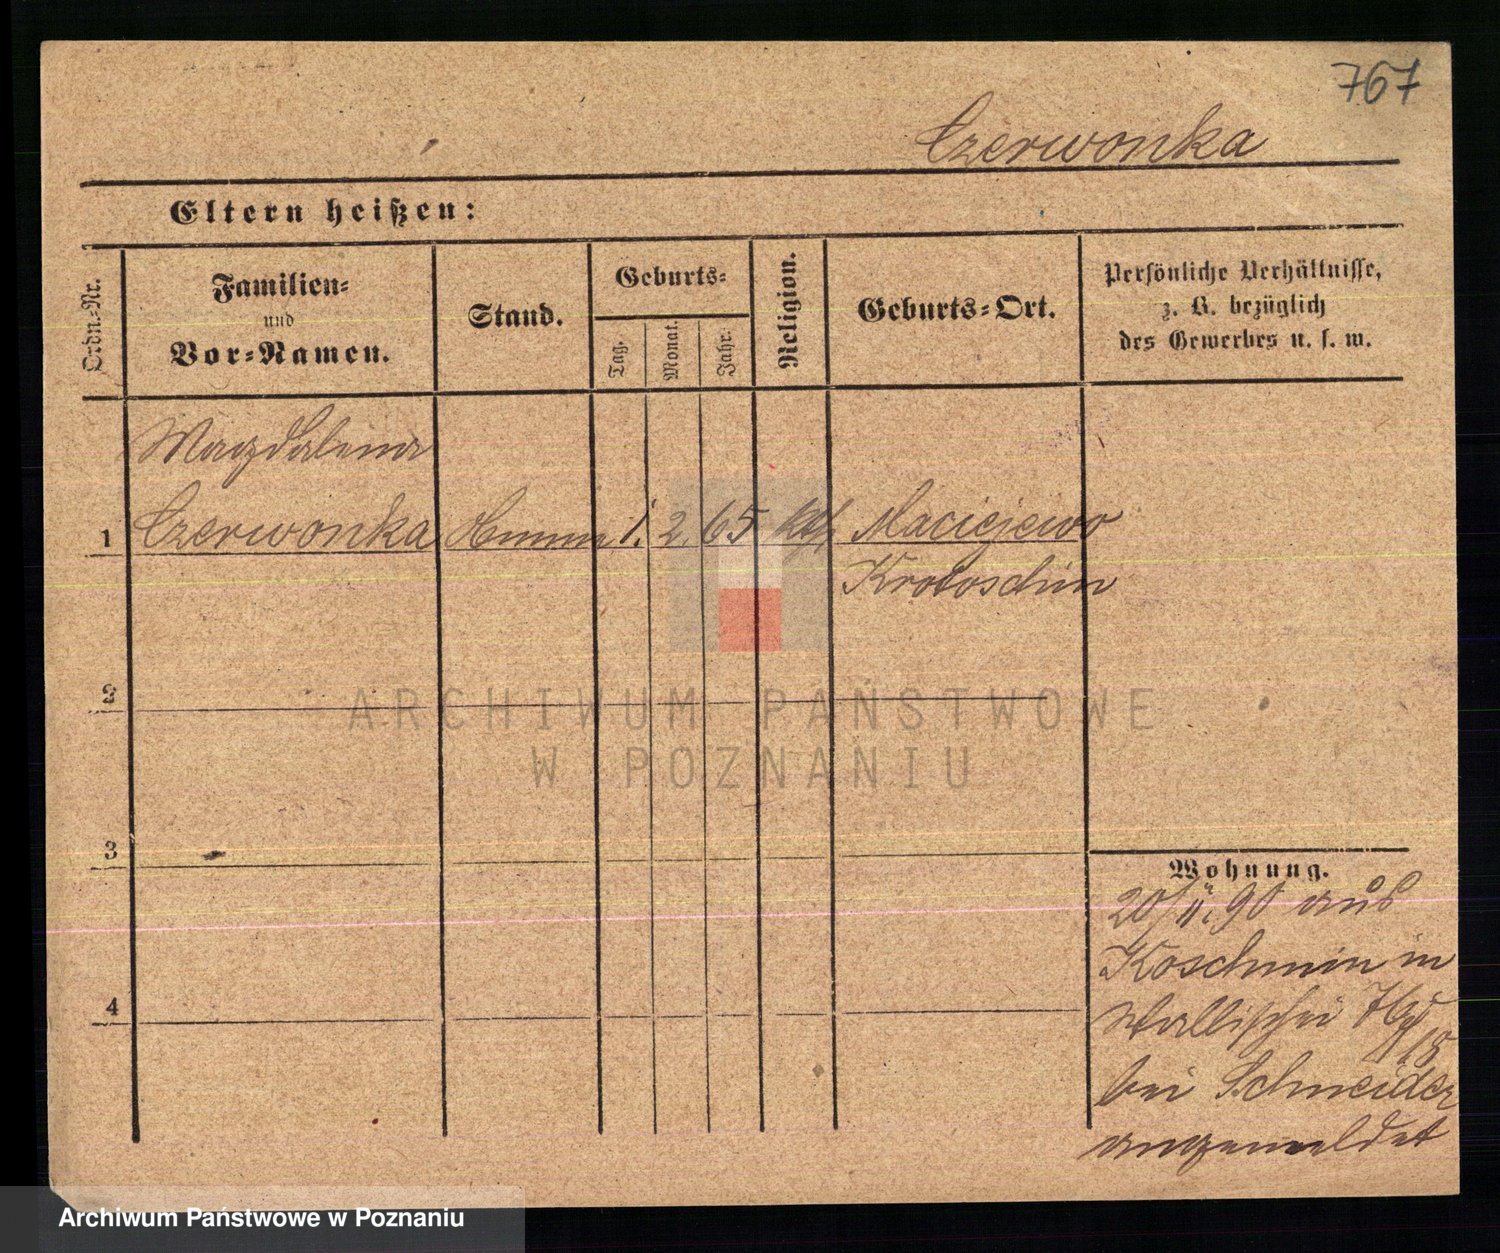 767
Czerwonka
Eltern heißen:
Ordn.-Nr.
Familien-
und
Vor-Namen.
Stand.
Geburts-
Tag.
Monat.
Jahr.
Religion.
Geburts-Ort.
Persönliche Verhältnisse,
z. B. bezüglich
des Gewerbes u. s. w.
Magdalena
1 Czerwonka 1. 2. 65 kth Maciejewo
Krotoschin
2
ARCHIWUM PAŃSTWOWE
W POZNANIU
3
Wohnung.
20/II. 90 aus
Koschmin in
4
Wallischei
bei Schneider
angemeldet
Archiwum Państwowe w Poznaniu